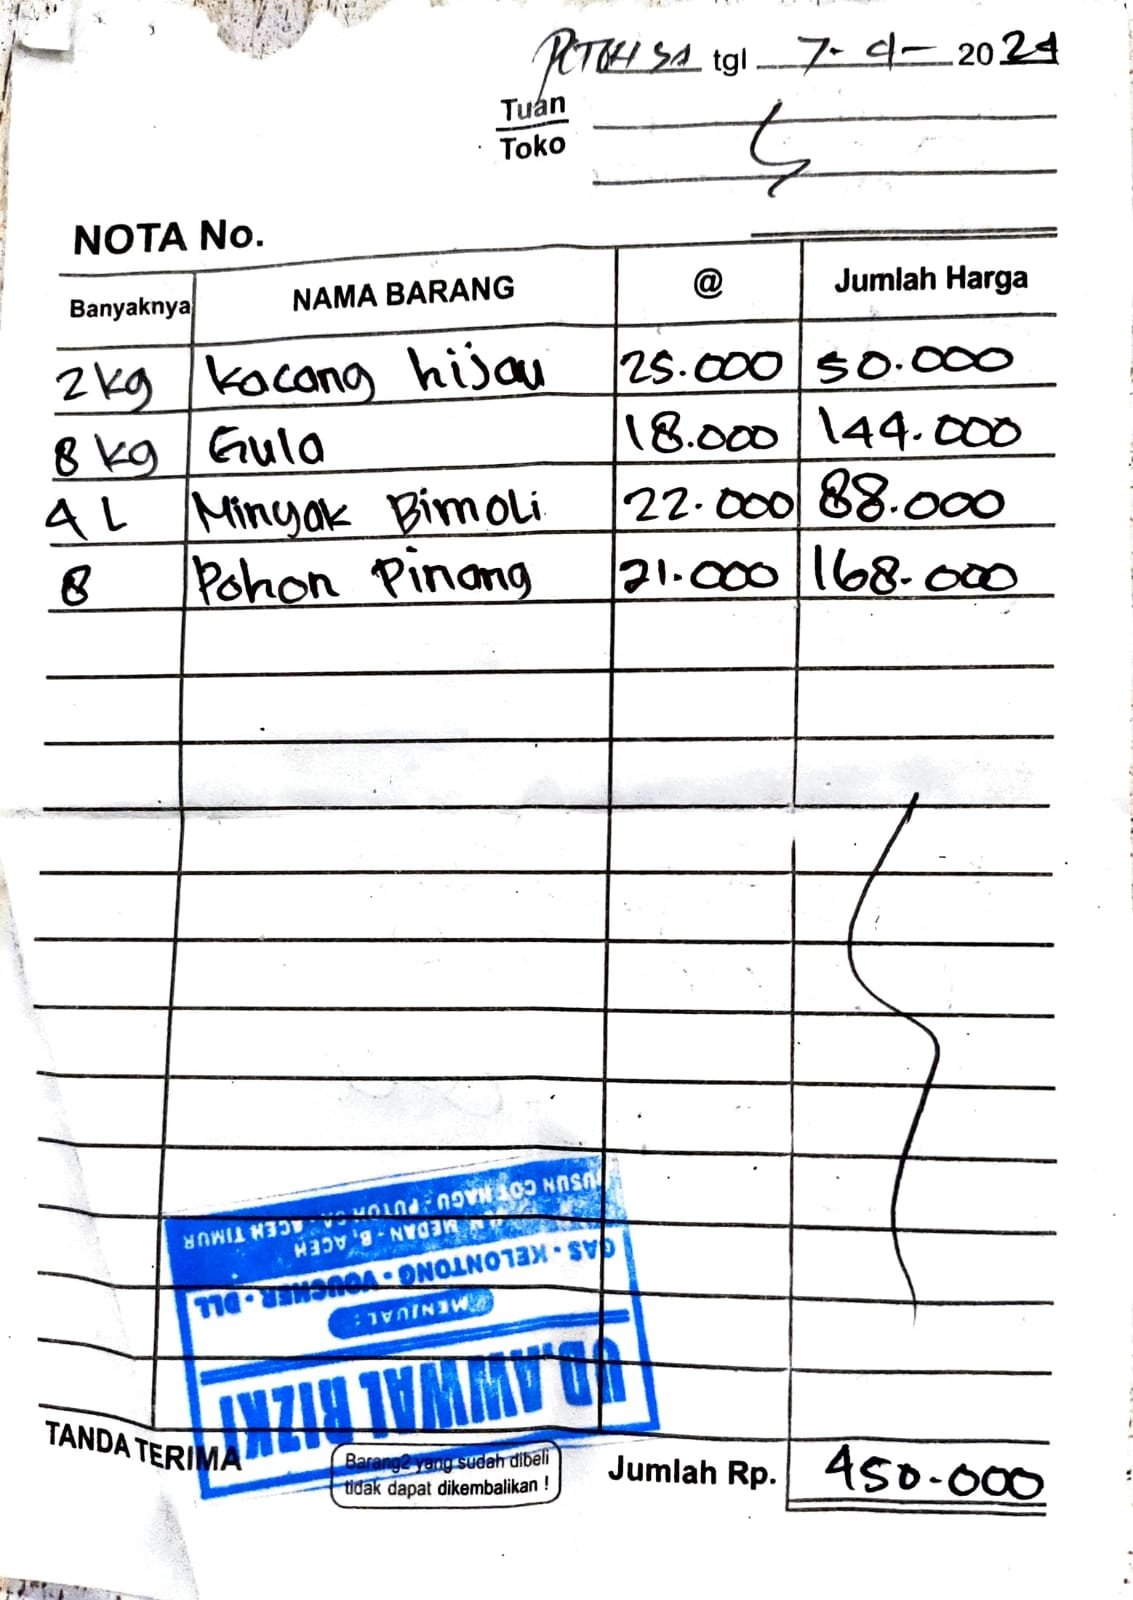 PCTOH SA tgl 7-4-2024
Tuan
Toko
NOTA No.
Banyaknya NAMA BARANG @ Jumlah Harga
2 kg Kacang hijau 25.000 50.000
8 kg Gula 18.000 144.000
4 L Minyak Bimoli 22.000 88.000
8 Pohon Pinang 21.000 168.000
UD. AWWAL RIZKI
MENJUAL :
GAS - KELONTONG - VOUCHER - DLL
MEDAN - B. ACEH
DUSUN COT HAGU - PUTOH SA - ACEH TIMUR
TANDA TERIMA
Barang2 yang sudah dibeli
tidak dapat dikembalikan !
Jumlah Rp. 450.000